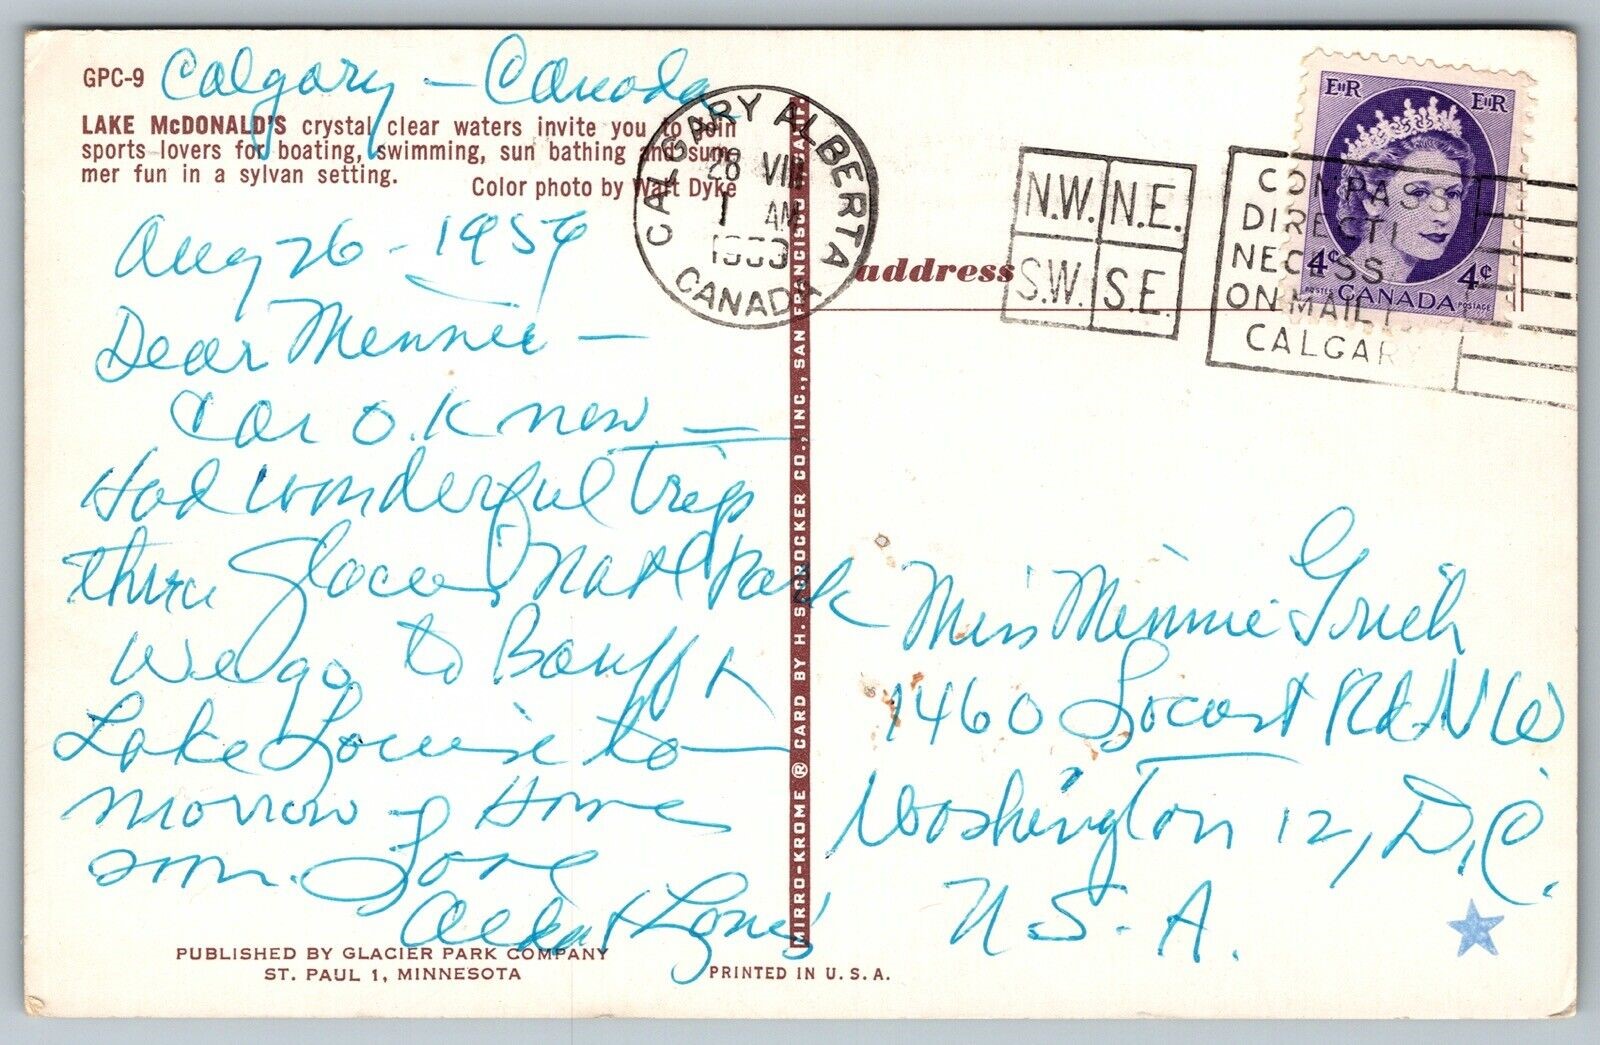 GPC-9 Calgary — Canada
LAKE McDONALD'S crystal clear waters invite you to join
sports lovers for boating, swimming, sun bathing and sum-
mer fun in a sylvan setting.
Color photo by Walt Dyke
Aug 26 - 1959
Dear Minnie —
Car O.K now —
Had wonderful trip
thru Glacier Natl Park
We go to Banff &
Lake Louise to—
morrow & Home
soon. Love
PUBLISHED BY GLACIER PARK COMPANY
ST. PAUL 1, MINNESOTA
MIRRO-KROME ® CARD BY H. S. CROCKER CO., INC., SAN FRANCISCO 1, CALIF.
PRINTED IN U. S. A.
CALGARY ALBERTA
28 VIII
1 AM
CANADA
address
N.W. N.E.
S.W. S.E.
COMPASS
DIRECTI
NECESS
ON MAIL
CALGARY
EIIR EIIR
4¢ 4¢
POSTES CANADA POSTAGE
Miss Minnie
1460 Locust Rd NW
Washington 12, D.C.
U.S.A.